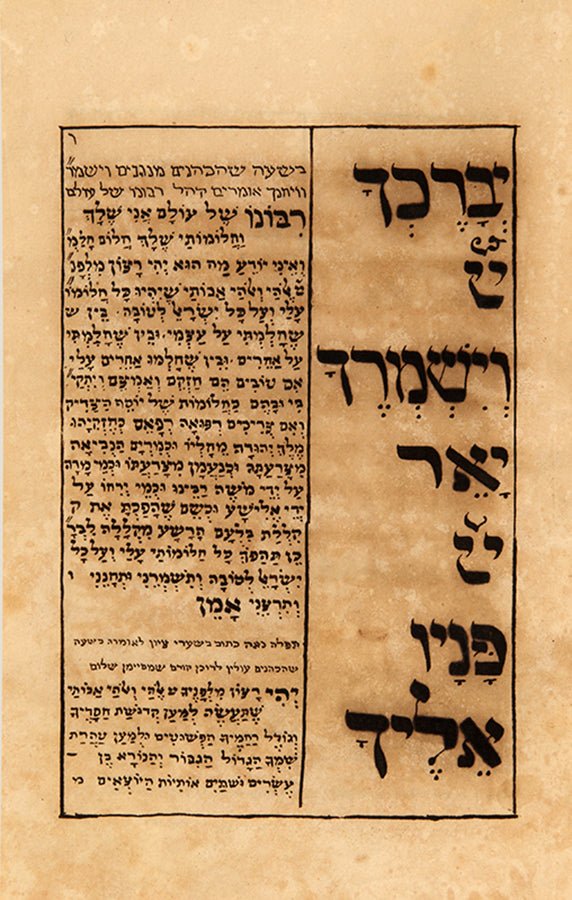 יְבָרֶכְךָ
ש
וְיִשְׁמְרֶךָ
יָאֵר
ש
פָּנָיו
אֵלֶיךָ
ר
בשעה שהכהנים מנגנים וישמר״
וויחנך אומרים קהל רבונו של עולם
רִבּוֹנוֹ שֶׁל עוֹלָם אֲנִי שֶׁלָּךְ
וַחֲלוֹמוֹתַי שֶׁלָּךְ חֲלוֹם חָלַמְ״
וְאֵינִי יוֹדֵעַ מַה הוּא יְהִי רָצוֹן מִלְּפָנֶ״
אֱלֹהַי וֵאלֹהֵי אֲבוֹתַי שֶׁיִּהְיוּ כָּל חֲלוֹמוֹ
עָלַי וְעַל כָּל יִשְׂרָאֵל לְטוֹבָה בֵּין ש
שֶׁחָלַמְתִּי עַל עַצְמִי וּבֵין שֶׁחָלַמְתִּי
עַל אֲחֵרִים וּבֵין שֶׁחָלְמוּ אֲחֵרִים עָלַי
אִם טוֹבִים הֵם חַזְּקֵם וְאַמְּצֵם וְיִתְקַ״
בִּי וּבָהֶם כַּחֲלוֹמוֹת שֶׁל יוֹסֵף הַצַּדִּיק
וְאִם צְרִיכִים רְפוּאָה רְפָאֵם כְּחִזְקִיָּהוּ
מֶלֶךְ יְהוּדָה מֵחָלְיוֹ וּכְמִרְיָם הַנְּבִיאָה
מִצָּרַעְתָּהּ וּכְנַעֲמָן מִצָּרַעְתּוֹ וּכְמֵי מָרָה
עַל יְדֵי מֹשֶׁה רַבֵּינוּ וּכְמֵי יְרִחוֹ עַל
יְדֵי אֱלִישָׁע וּכְשֵׁם שֶׁהָפַכְתָּ אֶת ק
קִלְלַת בִּלְעָם הָרָשָׁע מִקְּלָלָה לִבְרָ״
כֵּן תַּהֲפֹךְ כָּל חֲלוֹמוֹתַי עָלַי וְעַל כָּל
יִשְׂרָאֵל לְטוֹבָה וְתִשְׁמְרֵנִי וּתְחָנֵּנִי ו
וְתִרְצֵנִי אָמֵן
תפלה נאה כתוב בשערי ציון לאומרו בשעה
שהכהנים עולין לדוכן קודם שמסיימן שלום
יְהִי רָצוֹן מִלְּפָנֶיךָ אֱלֹהַי וֵאלֹהֵי אֲבוֹתַי
שֶׁתַּעֲשֶׂה לְמַעַן קְדוּשַׁת חֲסָדֶיךָ
וְגוֹדֶל רַחֲמֶיךָ הַפְּשׁוּטִים וּלְמַעַן טָהֳרַת
שִׁמְךָ הַגָּדוֹל הַגִּבּוֹר וְהַנּוֹרָא בֶּן
עֶשְׂרִים וּשְׁתַּיִם אוֹתִיּוֹת הַיּוֹצְאִים מִ